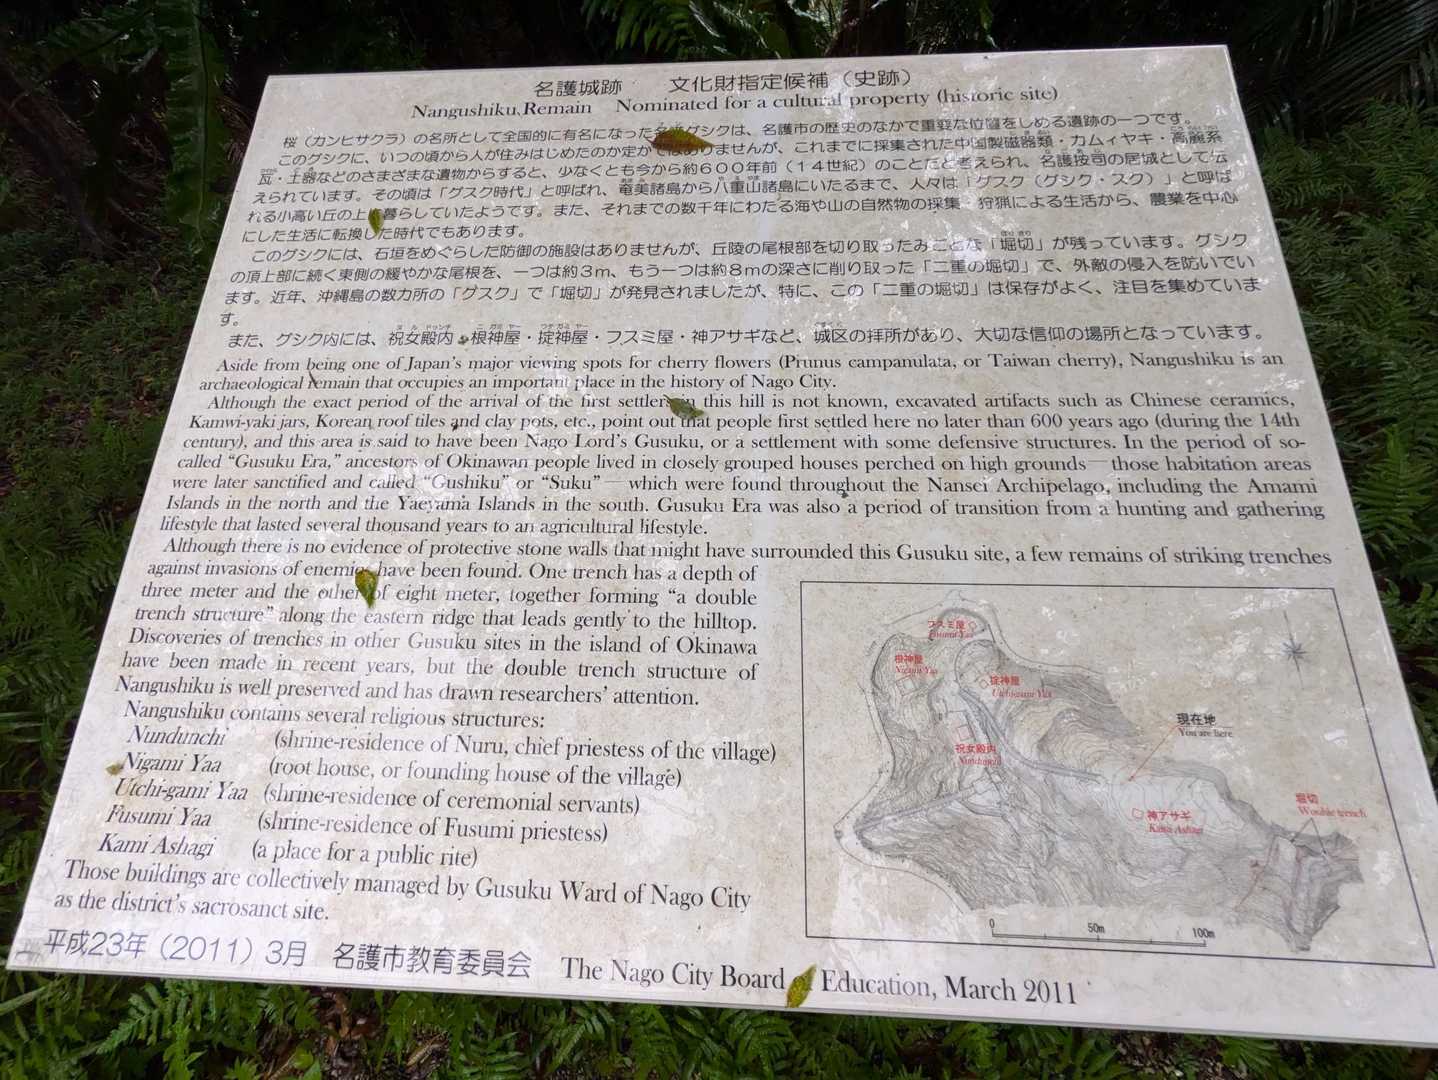 名護城跡　　文化財指定候補（史跡）
Nangushiku Remain Nominated for a cultural property (historic site)
桜（カンヒサクラ）の名所として全国的に有名になった名護グシクは、名護市の歴史のなかで重要な位置をしめる遺跡の一つです。
このグシクに、いつの頃から人が住みはじめたのか定かではありませんが、これまでに採集された中国製磁器類・カムィヤキ・高麗系
瓦・土器などのさまざまな遺物からすると、少なくとも今から約６００年前（１４世紀）のことだと考えられ、名護按司の居城として伝
えられています。その頃は「グスク時代」と呼ばれ、奄美諸島から八重山諸島にいたるまで、人々は「グスク（グシク・スク）」と呼ば
れる小高い丘の上に暮らしていたようです。また、それまでの数千年にわたる海や山の自然物の採集・狩猟による生活から、農業を中心
にした生活に転換した時代でもあります。
このグシクには、石垣をめぐらした防御の施設はありませんが、丘陵の尾根部を切り取ったみごとな「堀切」が残っています。グシク
の頂上部に続く東側の緩やかな尾根を、一つは約３ｍ、もう一つは約８ｍの深さに削り取った「二重の堀切」で、外敵の侵入を防いでい
ます。近年、沖縄島の数カ所の「グスク」で「堀切」が発見されましたが、特に、この「二重の堀切」は保存がよく、注目を集めていま
す。
また、グシク内には、祝女殿内・根神屋・掟神屋・フスミ屋・神アサギなど、城区の拝所があり、大切な信仰の場所となっています。
Aside from being one of Japan's major viewing spots for cherry flowers (Prunus campanulata, or Taiwan cherry), Nangushiku is an
archaeological remain that occupies an important place in the history of Nago City.
Although the exact period of the arrival of the first settlers in this hill is not known, excavated artifacts such as Chinese ceramics,
Kamwi-yaki jars, Korean roof tiles and clay pots, etc., point out that people first settled here no later than 600 years ago (during the 14th
century), and this area is said to have been Nago Lord's Gusuku, or a settlement with some defensive structures. In the period of so-
called “Gusuku Era,” ancestors of Okinawan people lived in closely grouped houses perched on high grounds—those habitation areas
were later sanctified and called “Gushiku” or “Suku”—which were found throughout the Nansei Archipelago, including the Amami
Islands in the north and the Yaeyama Islands in the south. Gusuku Era was also a period of transition from a hunting and gathering
lifestyle that lasted several thousand years to an agricultural lifestyle.
Although there is no evidence of protective stone walls that might have surrounded this Gusuku site, a few remains of striking trenches
against invasions of enemies have been found. One trench has a depth of
three meter and the other of eight meter, together forming “a double
trench structure” along the eastern ridge that leads gently to the hilltop.
Discoveries of trenches in other Gusuku sites in the island of Okinawa
have been made in recent years, but the double trench structure of
Nangushiku is well preserved and has drawn researchers' attention.
Nangushiku contains several religious structures:
Nundunchi (shrine-residence of Nuru, chief priestess of the village)
Nigami Yaa (root house, or founding house of the village)
Utchi-gami Yaa (shrine-residence of ceremonial servants)
Fusumi Yaa (shrine-residence of Fusumi priestess)
Kami Ashagi (a place for a public rite)
Those buildings are collectively managed by Gusuku Ward of Nago City
as the district's sacrosanct site.
フスミ屋
Fusumi Yaa
根神屋
Nigami Yaa
掟神屋
Utchigami Yaa
現在地
You are here
祝女殿内
Nundunchi
神アサギ
Kami Ashagi
堀切
trench
0 50m 100m
平成23年（2011）3月　名護市教育委員会　The Nago City Board Education, March 2011